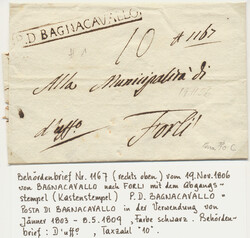 P.D. BAGNACAVALLO
10 # 1167
Alla Municipalità di
d'uffo Forlì
Behördenbrief Nr. 1167 (rechts oben) vom 19. Nov. 1806
von BAGNACAVALLO nach FORLI mit dem Abgangs-
stempel (Kastenstempel) P.D. BAGNACAVALLO =
POSTA DI BAGNACAVALLO in der Verwendung von
Jänner 1803 - 8.5.1809, Farbe schwarz. Behörden-
brief: D'uffo, Taxzahl "10".